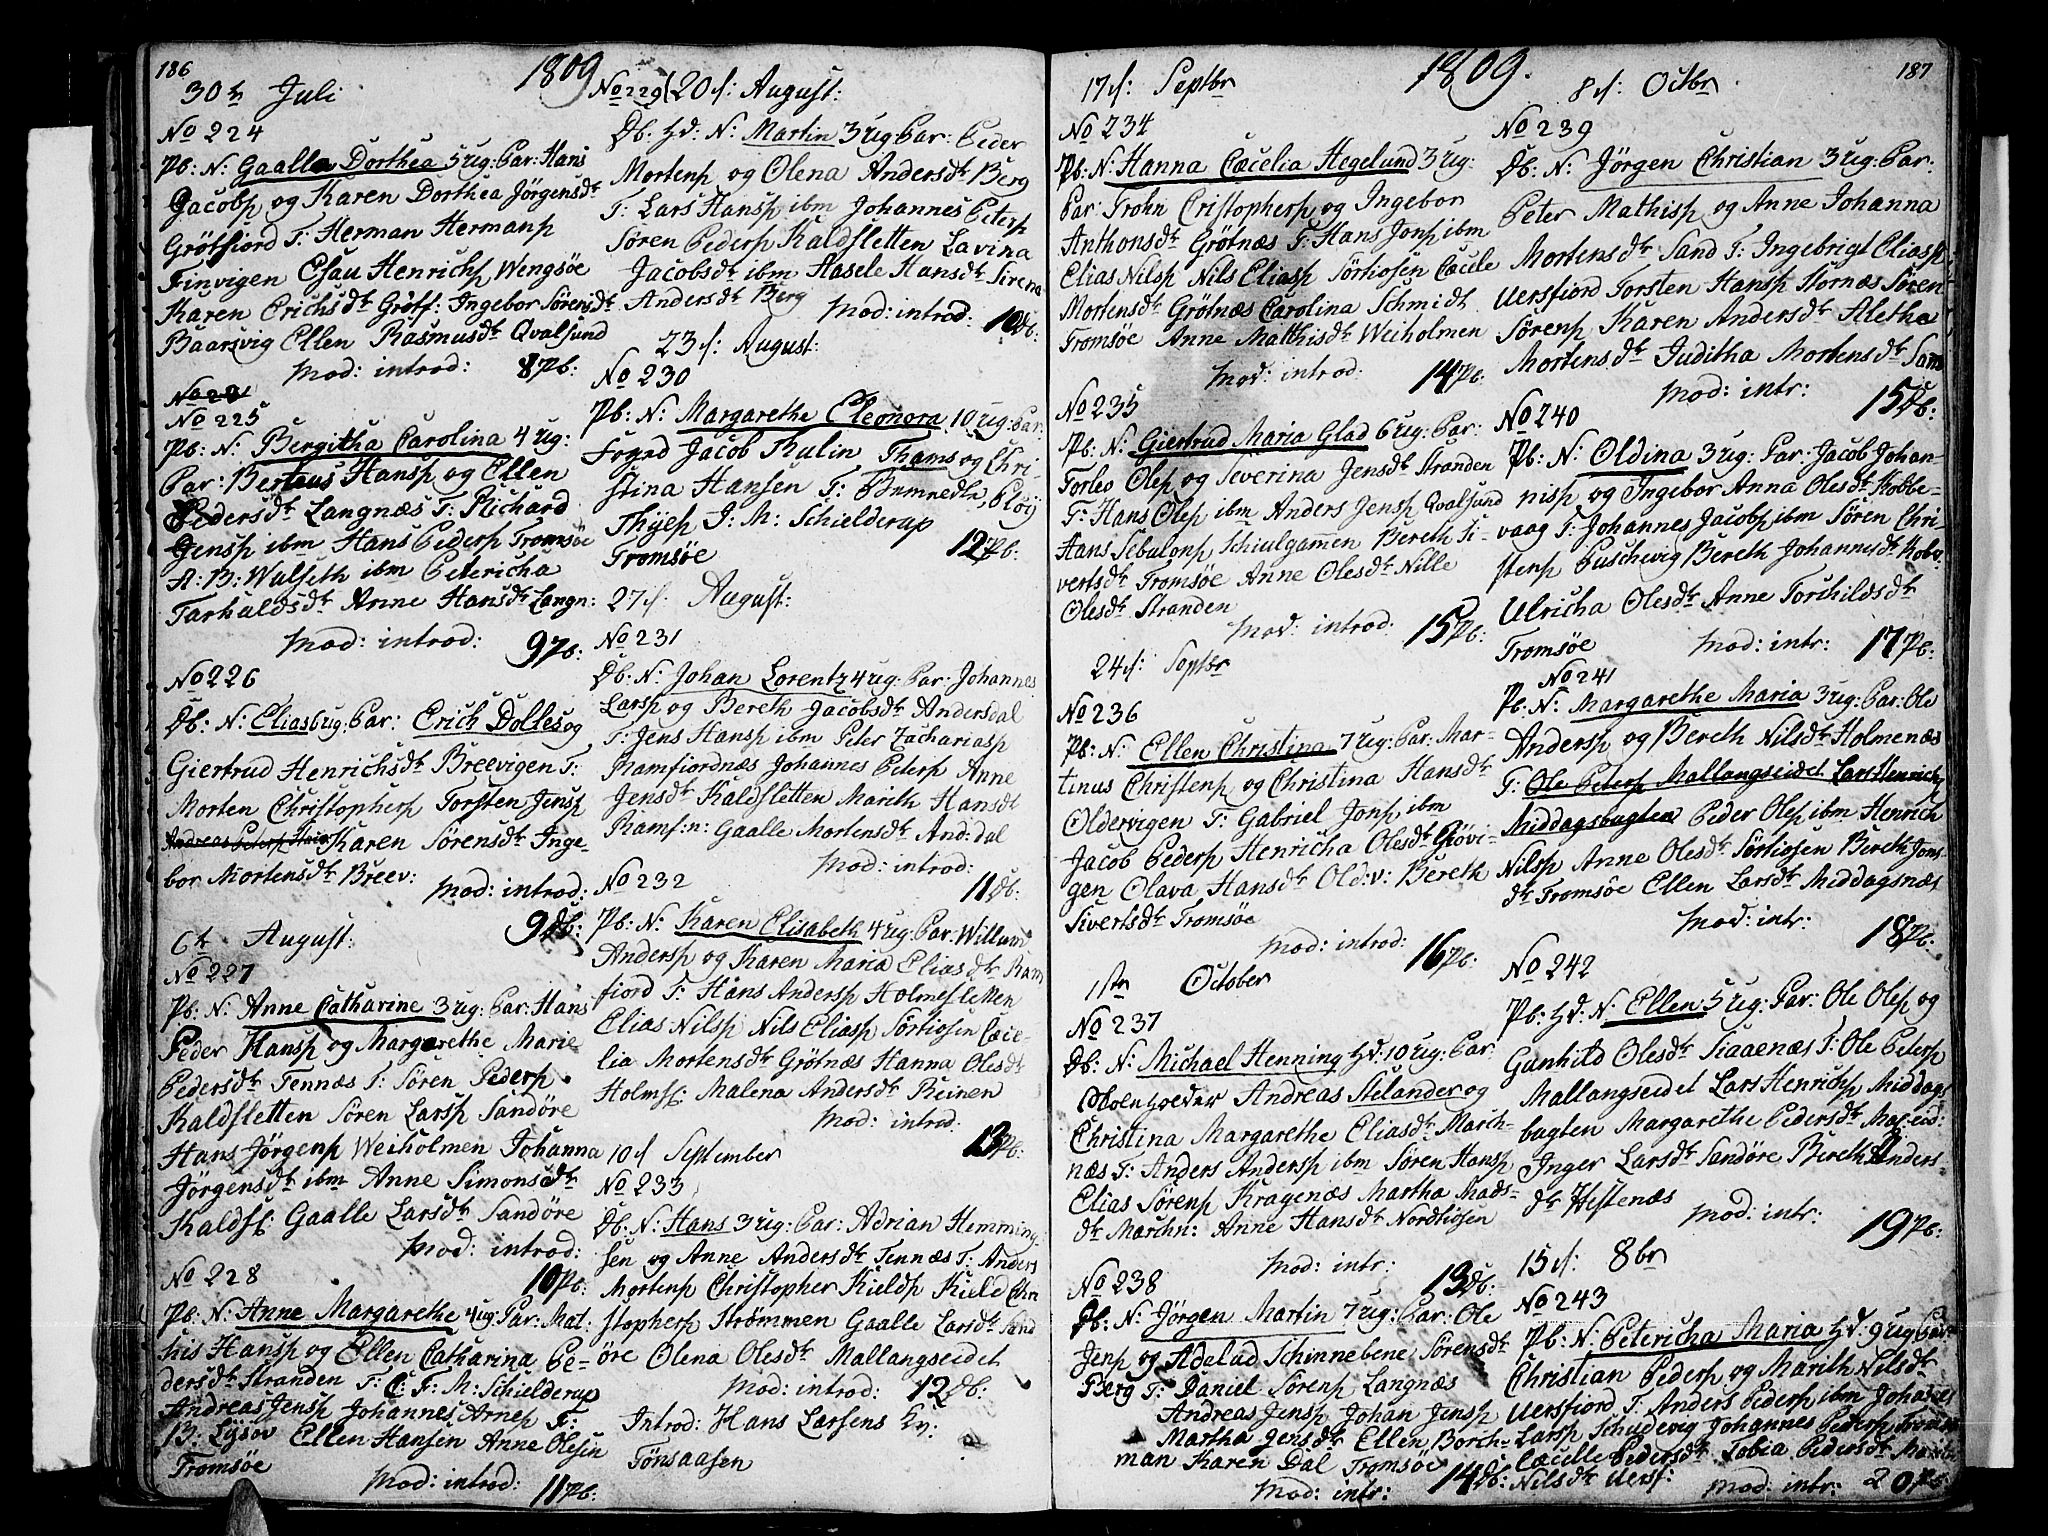 186
1809
30th Juli
No 224
Pb: N: Gaalla Dorthea 5 ug: Par: Hans
Jacobs: og Karen Dorthea Jörgensdtr
Grötfiord T: Herman Hermans:
Finvigen Esau Henrichs: Wengsöe
Karen Erichsdtr Grötf: Ingebor Sörensdtr
Baarsvig Ellen Rasmusdtr Qvalsund
Mod: introd: 8 Pb:
No 225
Pb: N: Bergitha Carolina 4 ug:
Par: Berteus Hans: og Ellen
Pedersdtr Langnæs T: Richard
Jens: ibm Hans Peders: Tromsöe
A: B: Wulseth ibm Petericha
Tarhaldsdtr Anne Hansdtr Langn:
Mod: introd: 9 Pb:
No 226
Db: N: Elias 6 ug: Par: Erich Dolles og
Giertrud Henrichsdtr Breevigen T:
Morten Christophers: Torsten Jens:
Karen Sörensdtr Inge-
bor Mortensdtr Breev:
Mod: introd:
9 Db:
6th August:
No 227
Pb: N: Anne Catharine 3 ug: Par: Hans
Peder Hans: og Margarethe Marie
Pedersdtr Tennæs T: Sören Peders:
Kaldsletten Sören Lars: Sandöre
Hans Jörgens: Weiholmen Johanna
Jörgensdtr ibm Anne Simonsdtr
Kaldsl: Gaalle Larsdtr Sandöre
Mod: introd:
No 228 10 Pb:
Pb: N: Anne Margarethe 4 ug: Par: Mat-
his Hans: og Ellen Catharina Pe-
dersdtr Stranden T: C: F: M: Schielderup
Andreas Jens: Johannes Arnes: F:
B: Lysöv Ellen Hansen Anne Olesen
Tromsöe
Mod: introd: 11 Pb:
No 229 20 d: August:
Db: Hd: N: Martin 3 ug Par: Peder
Mortens: og Olena Andersdtr Berg
T: Lars Hans: ibm Johannes Peters:
Sören Peders: Kaldsletten Lavina
Jacobsdtr ibm Hasele Hansdtr Sirena
Andersdtr Berg
Mod: introd: 10 Db:
23 d: August:
No 230
Pb: N: Margarethe Eleonora 10 ug: Par:
Foged Jacob Kulin Thams og Chri-
stina Hansen T: Ployg
Thyes: J: M: Schielderup
Tromsöe 12 Pb:
27 d: August:
No 231
Db: N: Johan Lorentz 4 ug: Par: Johannes
Lars: og Bereth Jacobsdtr Andersdal
T: Jens Hans: ibm Peter Zacharias:
Ramfiordnæs Johannes Peters: Anne
Jensdtr Kaldsletten Marith Hansdtr
Ramf:n: Gaalle Mortensdtr And:dal
Mod: introd:
No 232 11 Db:
Pb: N: Karen Elisabeth 4 ug: Par: Willum
Anders: og Karen Maria Eliasdtr Ram
fiord T: Hans Anders: Holmesletten
Elias Nils: Nils Elias: Sörtiosen Cæce-
lia Mortensdtr Grötnæs Hanna Olesdtr
Holmsl: Malena Andersdtr Reinen
Mod: introd:
13 Pb:
10 d September
No 233
Db: N: Hans 3 ug: Par: Adrian Hemming-
sen og Anne Andersdtr Tennæs T: Anders
Mortens: Christopher Kields: Kuld Chri
stophers: Strömmen Gaalle Larsdtr Sand
öre Olena Olesdtr Mallangseidet
Mod: introd: 12 Db:
Introd: Hans Larsens Kv:
Tönsaasen
187
1809.
17 d: Septbr
No 234
Pb: N: Hanna Cæcelia Hegelund 3 ug:
Par: Trohn Cristophers: og Ingebor
Anthonsdtr Grötnæs T: Hans Jons: ibm
Elias Nils: Nils Elias: Sörtiosen Cæcile
Mortensdtr Grötnæs Carolina Schmidt
Tromsöe Anne Matthisdtr Weiholmen
Mod: introd: 14 Pb:
No 235
Pb: N: Giertrud Maria Glad 6 ug: Par:
Torleo Oles: og Severina Jensdtr Stranden
T: Hans Oles: ibm Anders Jens: Qvalsund
Hans Sebulons: Schiulgamen Bereth Si-
vertsdtr Tromsöe Anne Olesdtr Nille
Olesdtr Stranden
Mod: introd: 15 Pb:
24 d: Septbr
No 236
Pb: N: Ellen Christina 7 ug: Par: Mar-
tinus Christens: og Christina Hansdtr
Oldervigen T: Gabriel Jons: ibm
Jacob Peders: Henricha Olesdtr Giövi-
gen Olava Hansdtr Old:v: Bereth
Sivertsdtr Tromsöe
Mod: introd: 16 Pb:
1ste October
No 237
Db: N: Michael Henning Hd: 10 ug: Par:
Andreas Stelander og
Christina Margarethe Eliasdtr March-
næs T: Anders Anders: ibm Sören Hans:
Elias Sörens: Kragenæs Martha Mads-
dtr Marchn: Anne Hansdtr Nordtiosen
Mod: intr: 13 Db:
No 238
Db: N: Jörgen Martin 7 ug: Par: Ole
Jens: og Adelud Schinnebene Sörensdtr
Berg T: Daniel Sörens: Langnæs
Andreas Jens: Johan Jens:
Martha Jensdtr Ellen Borch-
man Karen Dal Tromsöe
Mod: intr: 14 Db:
8 d: Octbr
No 239
Db: N: Jörgen Christian 3 ug: Par:
Peter Mathis: og Anne Johanna
Mortensdtr Sand T: Ingebrigt Elias:
Uersfiord Torsten Hans: Stornæs Sören
Sörens: Karen Andersdtr Aletha
Mortensdtr Juditha Mortensdtr Sand
Mod: intr: 15 Db:
No 240
Pb: N: Oldina 3 ug: Par: Jacob Johan-
nis: og Ingebor Anna Olesdtr Kobbe-
vaag T: Johannes Jacobs: ibm Sören Chri-
stens: Buschevig Bereth Johannesdtr Kobv:
Ulricha Olesdtr Anne Torchildsdtr
Tromsöe Mod: intr: 17 Pb:
No 241
Pb: N: Margarethe Maria 3 ug: Par: Ole
Anders: og Bereth Nilsdtr Holmenæs
T: Ole Peters: Mallangseidet Lars Henrichs:
Middagsbugten Peder Oles: ibm Henrich
Nils: Anne Olesdtr Sörtiosen Bereth Jons-
dtr Tromsöe Ellen Larsdtr Middagsnæs
Mod: intr: 18 Pb:
No 242
Pb: Hd: N: Ellen 5 ug: Par: Ole Oles: og
Gunhild Olesdtr Siaaenæs T: Ole Peters:
Mallangseidet Lars Henrichs: Middags
bugten Margarethe Pedersdtr Mal:eid:
Inger Larsdtr Sandöre Bereth Anders-
dtr Hestenæs Mod: intr: 19 Pb:
15 d: 8br
No 243
Pb: N: Petericha Maria Hd: 9 ug Par:
Christian Peders: og Marith Nilsdtr
Uersfiord T: Anders Peders: ibm Johannes
Lars: Schudevig Johannes Peders:
Cæcille Pedersdtr Tobia Pedersdtr
Nilsdtr Uersf: Mod: intr: 20 Pb: